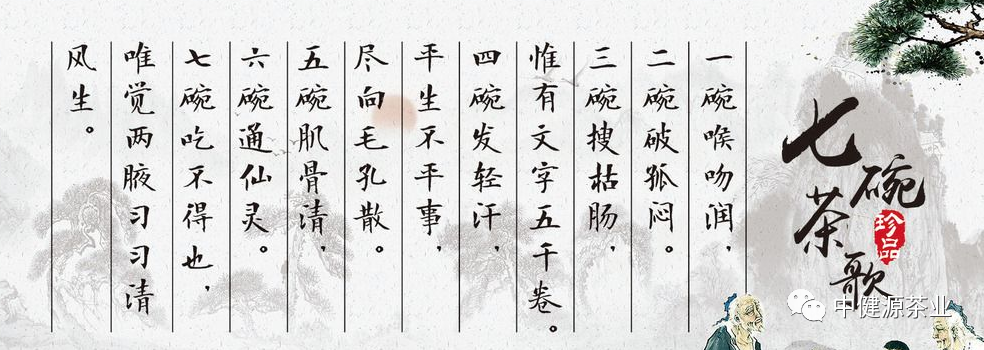 七碗茶歌
珍品
一碗喉吻润，
二碗破孤闷。
三碗搜枯肠，
惟有文字五千卷。
四碗发轻汗，
平生不平事，
尽向毛孔散。
五碗肌骨清，
六碗通仙灵。
七碗吃不得也，
唯觉两腋习习清
风生。
中健源茶业